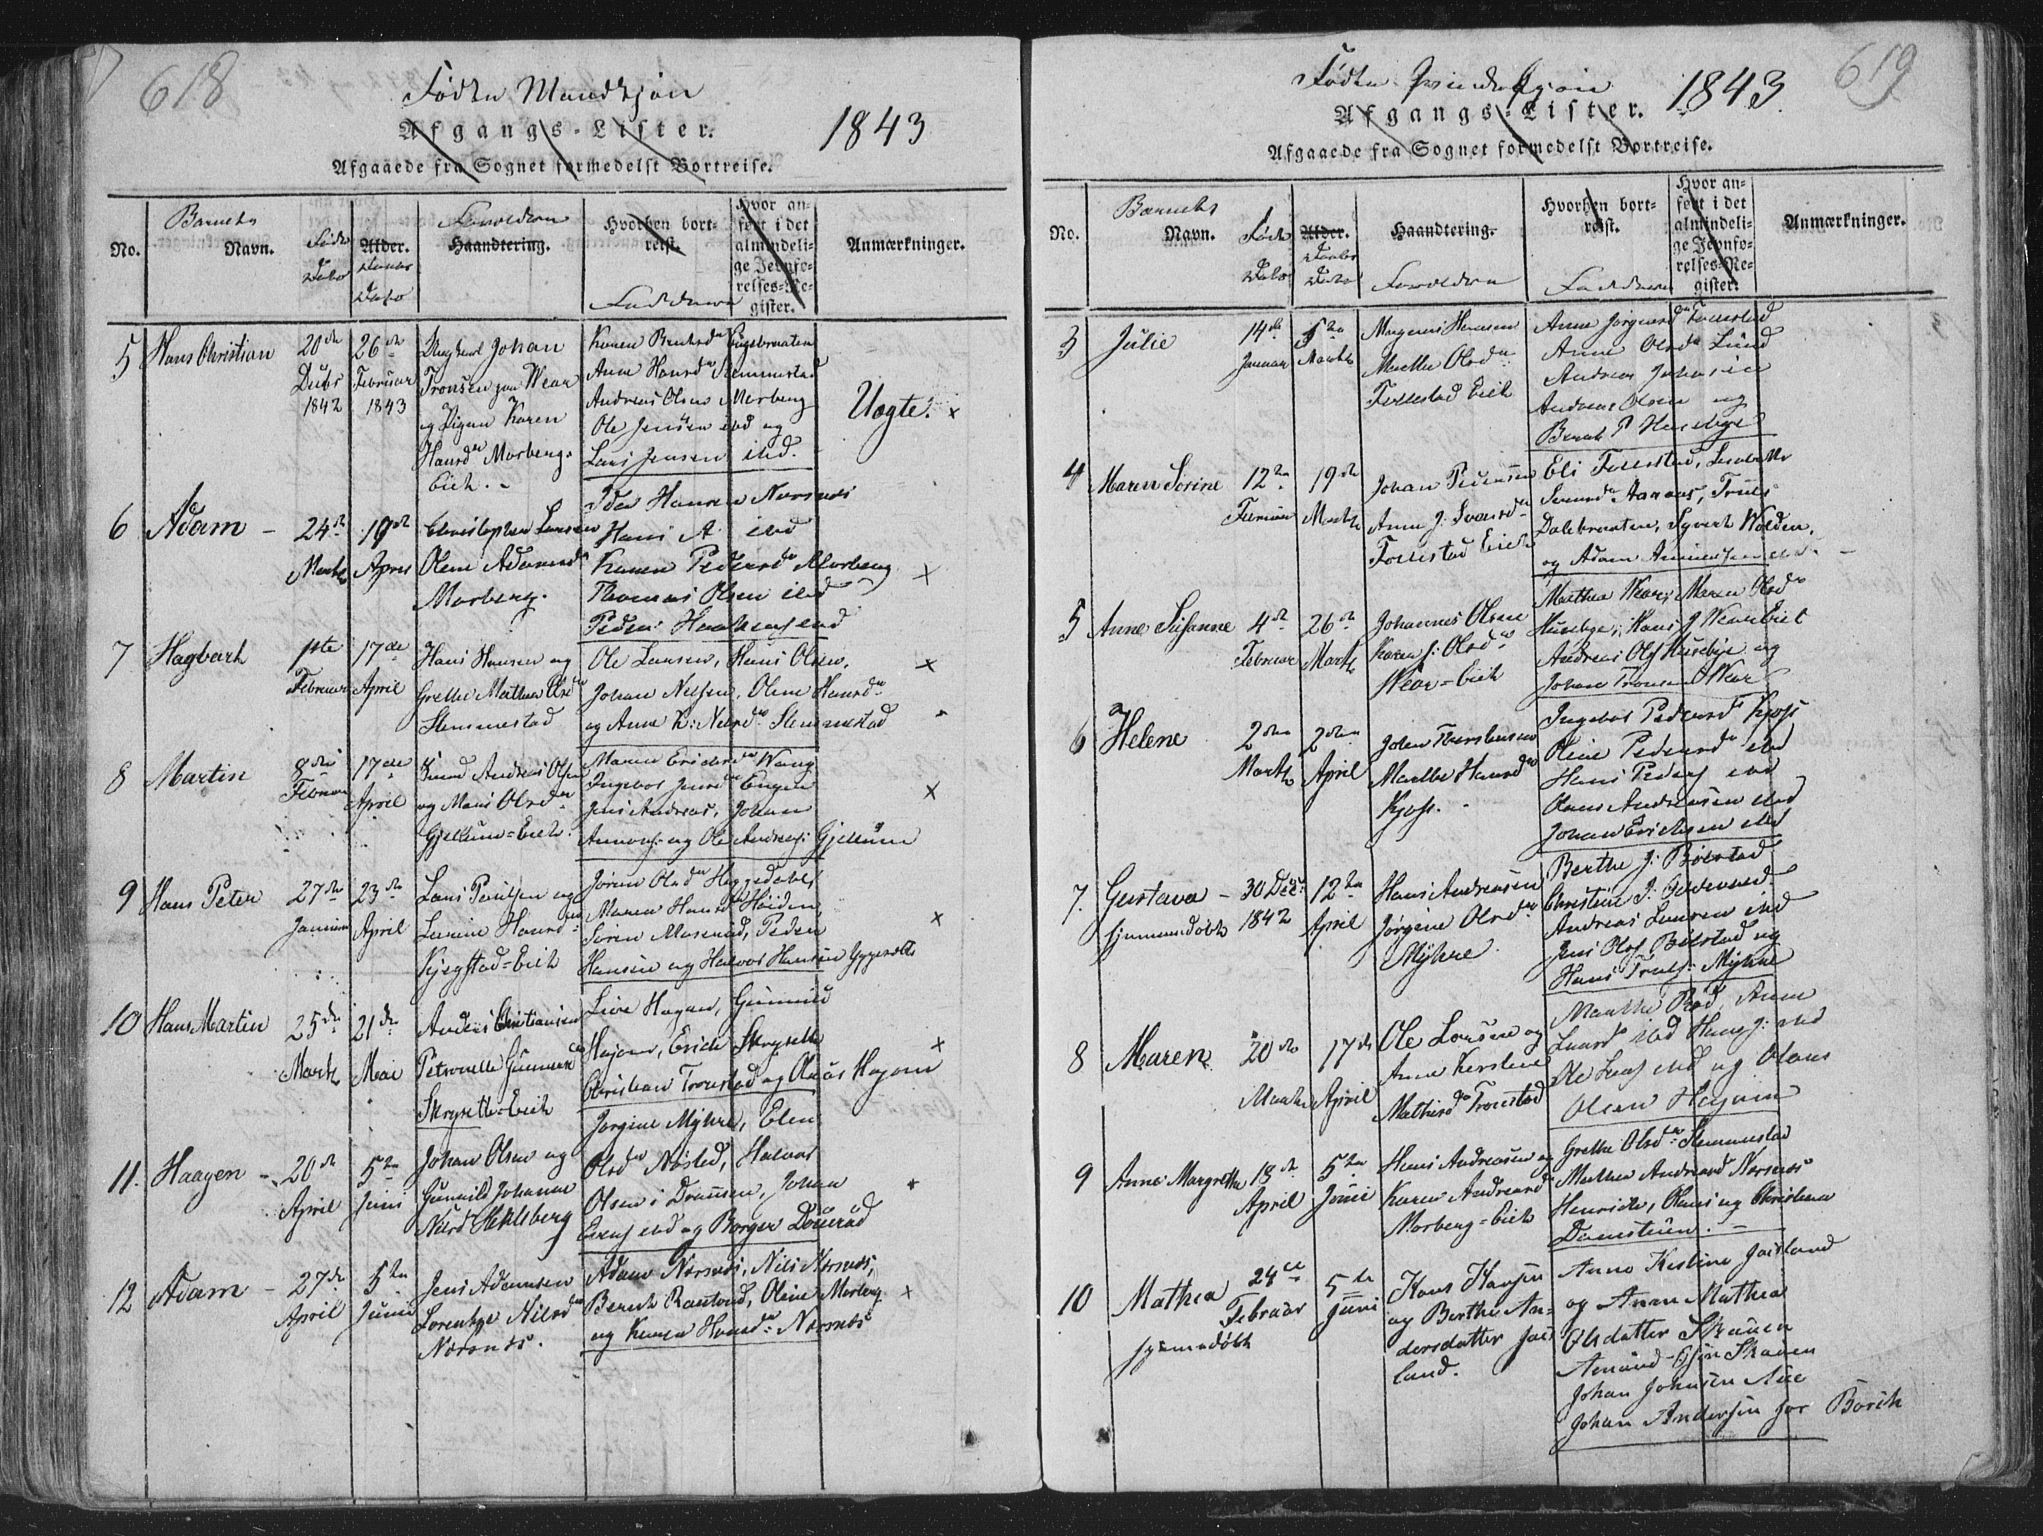 618
Fødte Mandkjøn
Afgangs-Lister.
1843
Afgaaede fra Sognet formedelst Bortreise.
No.
Barnets
Navn.
Føds
Dato
Alder.
Daabs
Dato
Forældrene
Haandtering.
Hvorhen bort-
reist.
Fadderne
Hvor an-
ført i det
almindeli-
ge Jevnfø-
relses-Re-
gister.
Anmærkninger.
5 Hans Christian
20de
Decbr
1842
26de
Februar
1843
Ungkarl Johan
Tronsen paa Wear
og Pigen Karen
Hansdr Morberg-
Eiek.
Anne Hansdr Slemmestad
Andreas Olsen Morberg
Ole Jensen ibd og
Lars Jensen ibd.
Uægte. x
6 Adam -
24de
Marts
19de
April
Christopher Larsen
Oline Adamsdr
Morberg.
Ida Hansen Nærsnæs
Hans A. ibd
Karen Pedersd Morberg
Thomas Olsen ibd
x
7 Hagbart
1ste
Februar
17de
April
Hans Hansen og
Grethe Mathea Olsdr
Slemmestad
Ole Larsen, Hans Olsen,
Johan Nilsen, Oline Hansdr
og Anne K: Nilsdr Slemmestad
x
8 Martin
8de
Februar
17de
April
Andreas Olsen
og Maris Olsdr
Gjellum-Eiek.
Maren Ericksdr Wang
Ingebor Jensdr Engen
Jens Andreas, Johan
og Ole Andreas: Gjellum
x
9 Hans Peter
27de
Januar
23de
April
Lars Poulsen og
Hansdr
Kjegstad-Eiek
Jøran Olsdr Heggedahl
Maren Hansdr Høiden,
Søren Moserud, Peder
Hansen og Halvor Hansen
x
10 Hans Martin
25de
Marts
21de
Mai
Anders Christiansen
Petronelle Gunnersd
Skrysetta-Eiek
Live Hagen, Gunnild
Hajem, Erick Skrysetta
Christian Tronstad og Olaus Hajem
x
11. Haagen -
20de
April
5te
Juni
Johan Olsen og
Gunnild Johanne
Nilsd Heklsberg
Jørgine Myhre, Elen
Olsdr Næsted, Halvor
Olsen i Drammen, Johan
Evens ibd og Borger Dønerud
x
12 Adam -
27de
April
5te
Juni
Jens Adamsen
Lorentze Nilsdr
Nærsnæs.
Adam Nærsnæs, Nils Nærsnæs,
Bernt Ramstad, Oline Morberg
og Karen Hansdr: Nærsnæs
x
619
Fødte Qvindekjøn
1843
Afgangs-Lister.
Afgaaede fra Sognet formedelst Bortreise.
No.
Barnets
Navn.
Føds
Dato
Alder.
Daabs
Dato
Haandtering.
Forældrene
Hvorhen bort-
reist.
Fadderne
Hvor an-
ført i det
almindeli-
ge Jevnfø-
relses-Re-
gister.
Anmærkninger.
3 Julie
14de
Januar
5te
Marts
Magnus Hansen
Marthe Olsdr
Follestad Eiek
Anne Jørgensdr Follestad
Anne Olsdr Lund
Andreas Johnsen
Andreas Olsen og
Bernt P Husebye
4 Maren Serine
12te
Februar
19de
Marts
Johan Pedersen
Anne J: Svensdr
Follestad Eiek
Eli Follestad, Lisebethe
Svensdr Aaraas, Truls
Dalebraaten, Syvert Wolden,
og Adam
5 Anne Susanne
4de
Februar
26de
Marts
Johannes Olsen
Karen J: Olsdr
Wear-Eiek
Marthea Wear, Maren Olsdr
Husebye, Hans J Wear Eiet
Andreas Ols Husebye og
Johan Tronsen Wear
6 Helene
2den
Marts
2den
April
Marthe Hansdr
Kjos.
Ingebor Pedersd Kjos
Oline Pedersdr ibd
Hans Peders ibd
Olaus Andreasen ibd
Johan Ericksen ibd
7. Gustava -
hjemmedøbt
30 Dec:
1842
12te
April
Hans Andreasen
Jørgine Olsdr
Myhre
Berthe J: Bølstad
Christine J:
Andreas Larsen ibd
Jens Ols Bølstad og
Hans Truls: Myhre
8 Maren
20de
Marts
17de
April
Ole Larsen og
Anne Kirstine
Mathisd Tronstad
Marthe Rød, Anne
Larsd ibd Hans J: ibd
Ole Lars ibd og Olaus
Olsen Hajem
9 Anne Margrethe
13de
April
5te
Juni
Hans Andreasen og
Karen Andreasd
Morberg-Eiek
Grethe Olsdr Slemmestad
Mathea Andreasd Nærsnæs
Henrick, Claus og Christian
Damstuen.
10 Mathea
hjemmedøbt
24de
Februar
5te
Juni
Hans Hansen
og Berthe An-
dersdatter Jons
land.
Anne Kirstine Jonsland
og Anne Mathea
Olsdatter Skauen
Amund Skauen
Johan Johnsen Aue
Johan Andersen for Børick